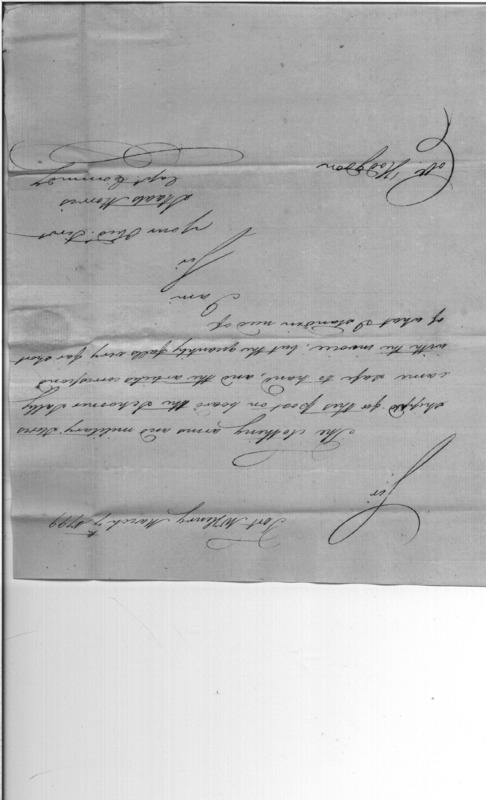 Fort McHenry March 7th 1799
Sir
The clothing arms and military stores
shipped for this post on board the Schooner Sally
came safe to hand, and the articles correspond
with the invoice, but the quantity falls very far short
of what I stand in need of
I am
Sir
your Obd. Servt
Staats Morris
Capt. Commdg
Col. Hodgdon